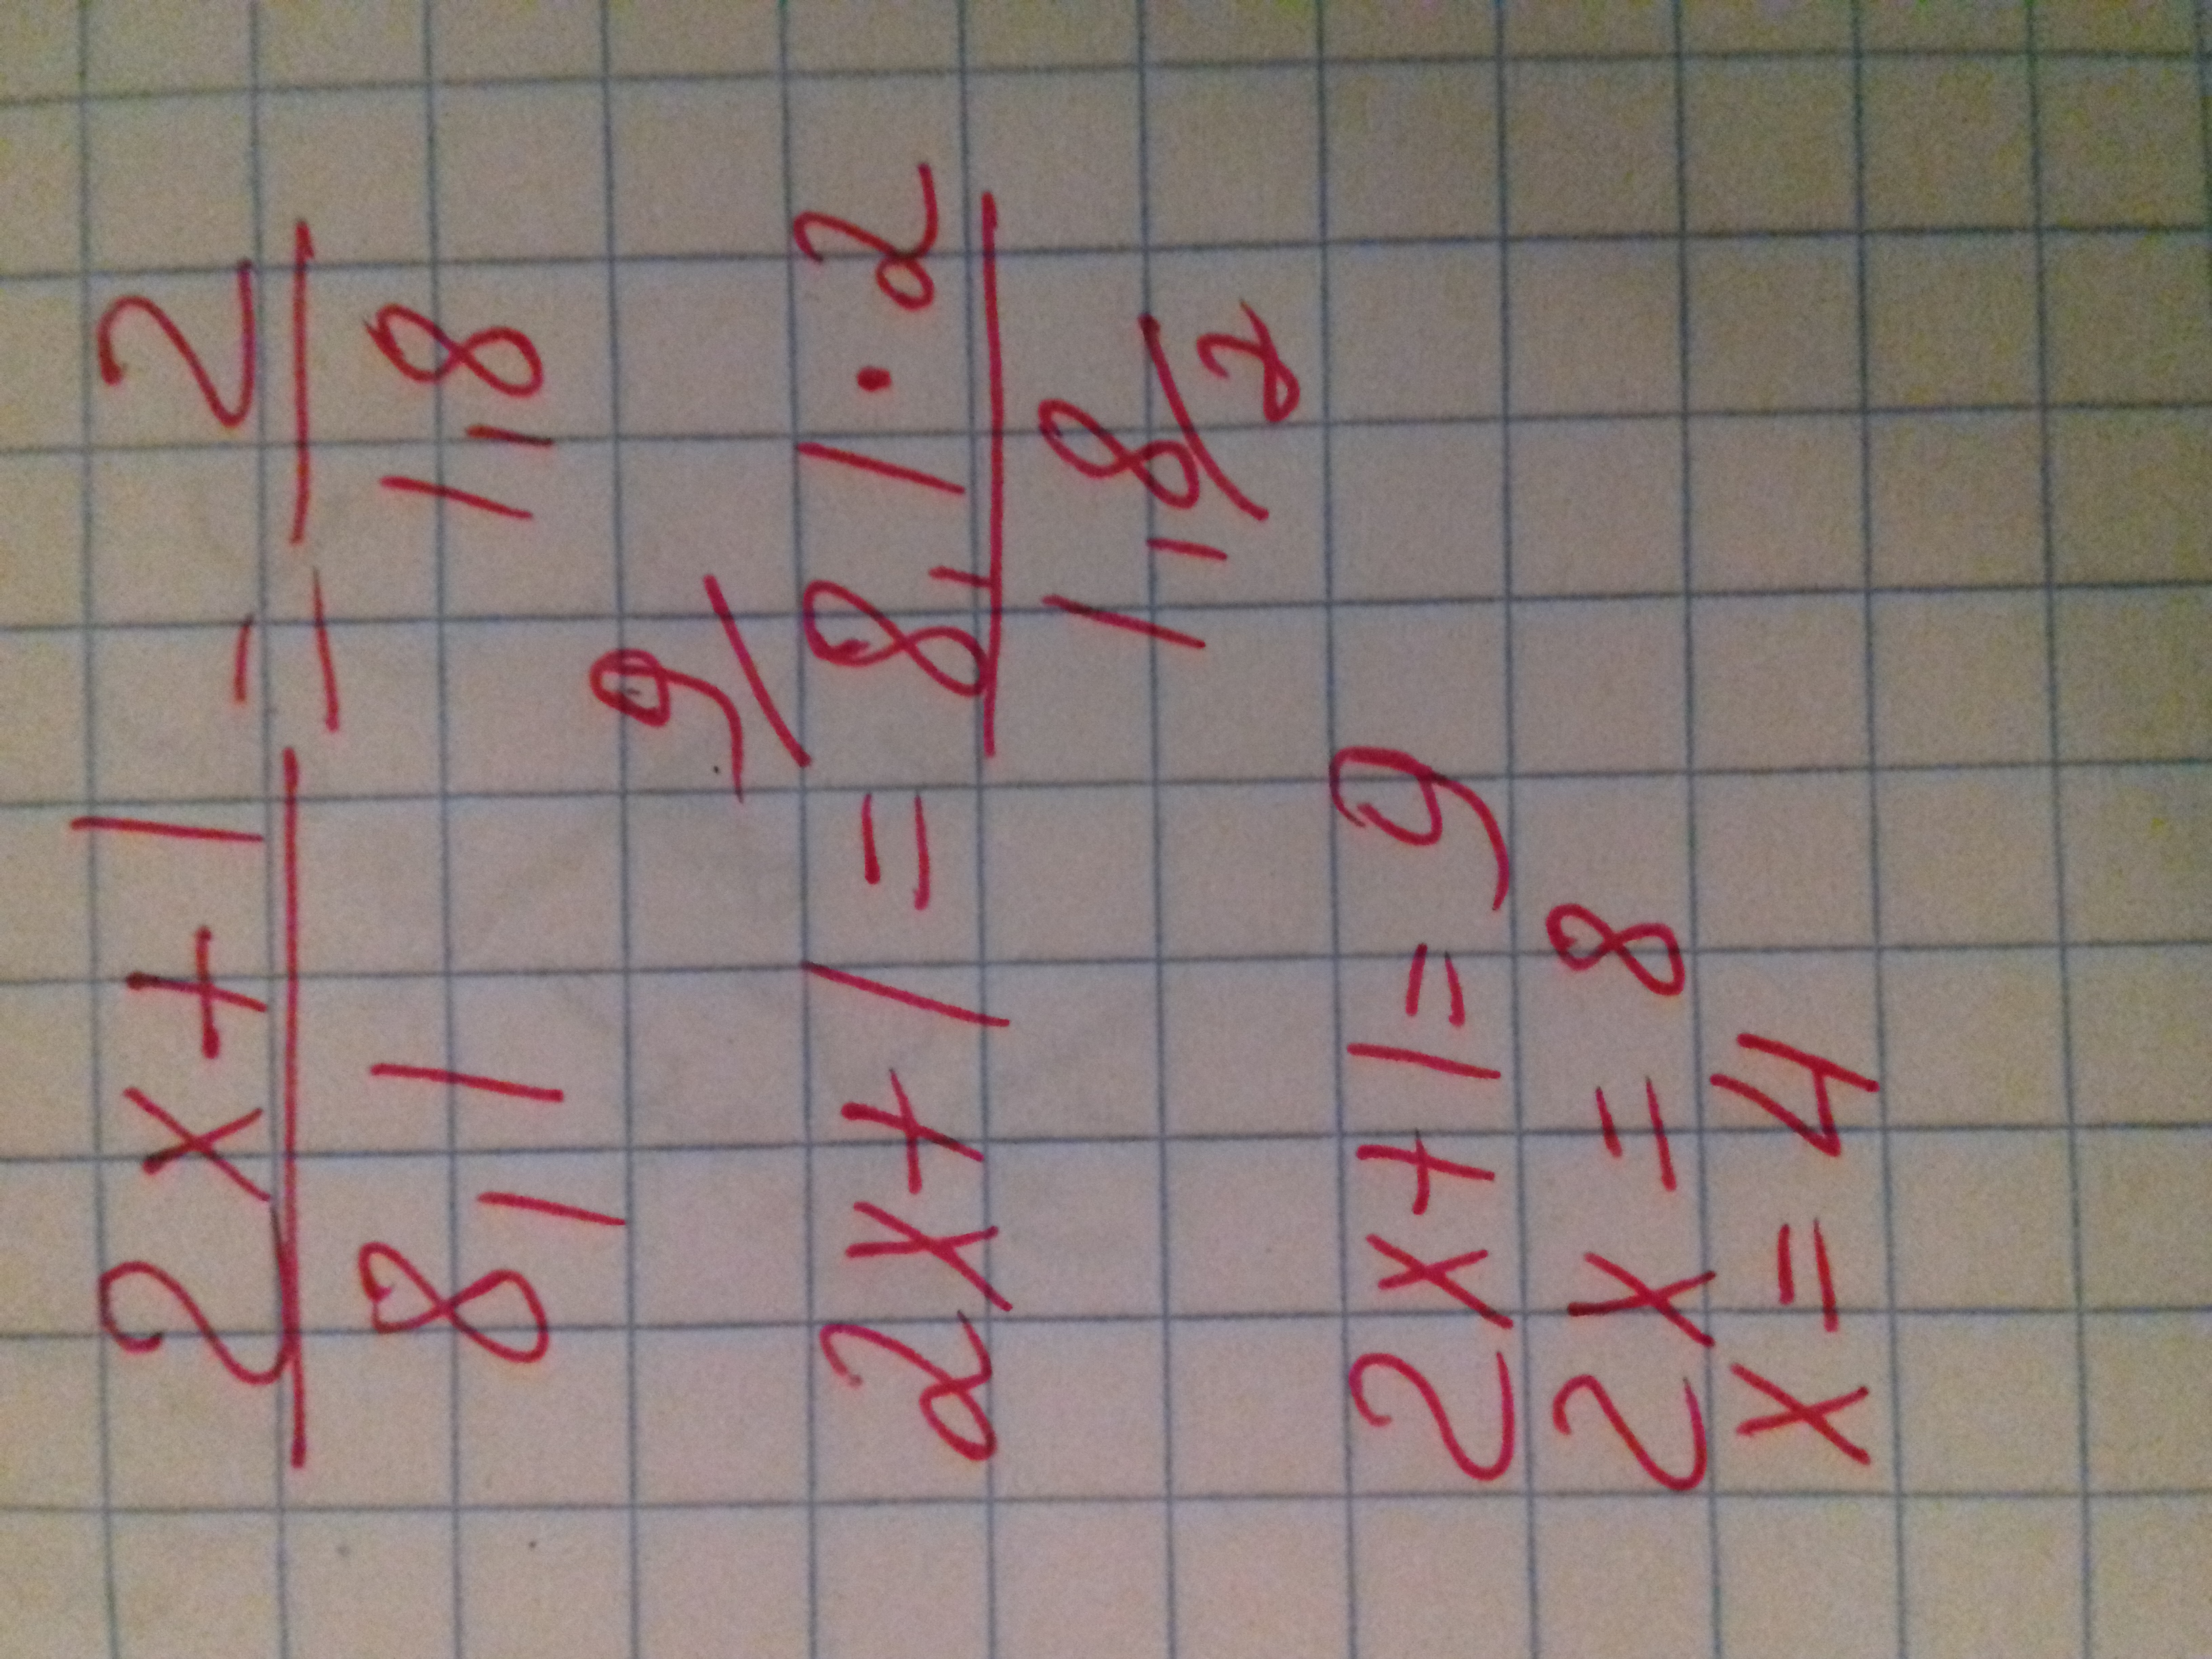 2x+1 = 2
8,1 1,8
9
2x+1 = 8,1 · 2
1,8
2
2x+1=9
2x=8
x=4